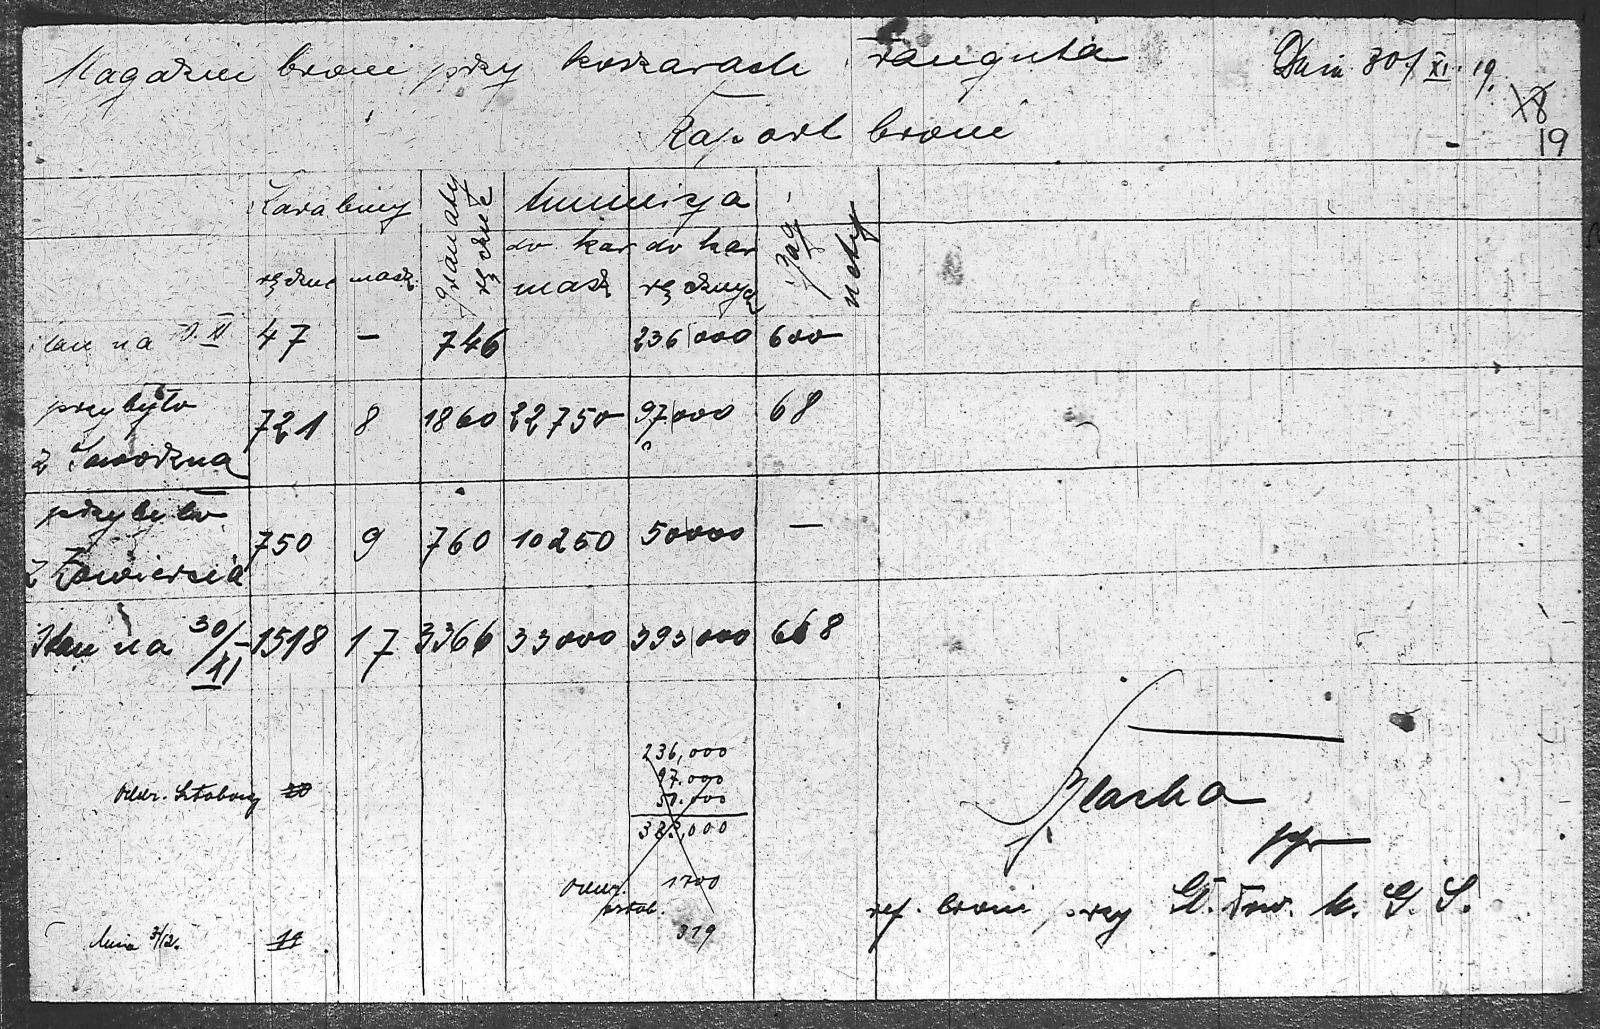 Magazin broni przy koszarach Trauguta Dnia 30/XI. 19.
18
19
Raport broni
Karabiny granaty ręczne Amunicja bagnety
ręczne masz. do kar masz do kar ręcznych
stan na 1. XI 47 - 746 236/000 600
przybyło
z Sosnowca 721 8 1860 22750 97/000 68
przybyło
z Zawiercia 750 9 760 10250 50000 —
Stan na 30/XI 1518 17 3366 33000 393/000 668
236,000
97.000
50.000
383,000
Oddz. Sztabowy 20
Oddz. sztab. 1700
319
dnia 3/12. 14
ppr
ref. broni przy